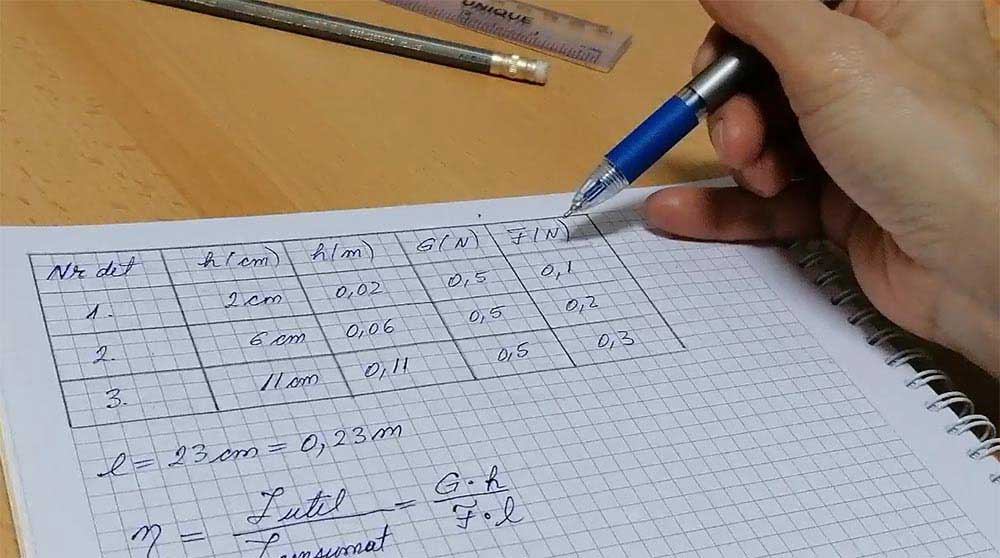 UNIQUE
Nr det h(cm) h(m) G(N) F(N)
1. 2 cm 0,02 0,5 0,1
2. 6 cm 0,06 0,5 0,2
3. 11 cm 0,11 0,5 0,3
l = 23 cm = 0,23 m
η = Lutil = G·h
Lconsumat F·l